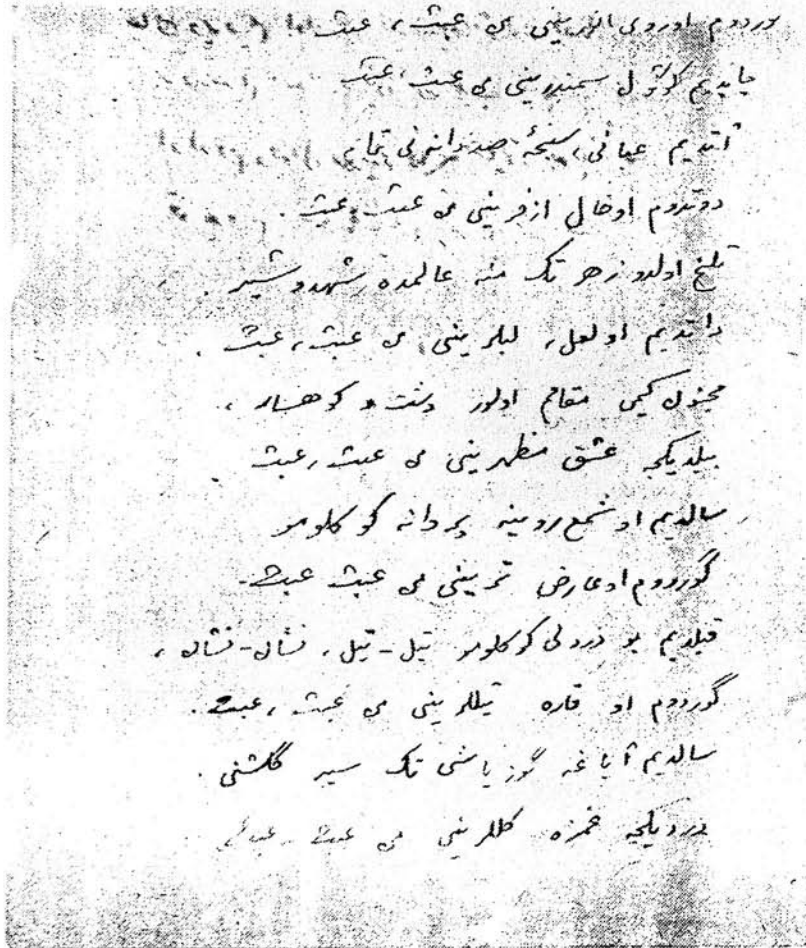 سوردوم اوروی انورینی من عبث، عبث
چاپدیم کونول سمندرینی من عبث، عبث
آتدیم عبانی، سبحهٔ صددانه نی تمام
دوتدوم اوخال ازفرینی من عبث، عبث.
تلخ اولدو زهر تک منه عالمده، شهد و شیر.
داتدیم او لعل، لبلرینی، من عبث، عبث.
مجنون کیمی مقامیم اولور دشت و کوهسار،
بیلدیکجه عشق مظهرینی من عبث، عبث
سالدیم او شمع روینه پروانه کوکلومو
گوردوم او عارض ترینی من عبث عبث.
قیلدیم بو دردلی کوکلومو تیل-تیل، نشان-نشان،
گوردوم او قاره تیللرینی من عبث، عبث.
سالدیم آیاغه گوز یاشی تک سیر گلشنی.
دردیکجه غمزه گللرینی من عبث، عبث